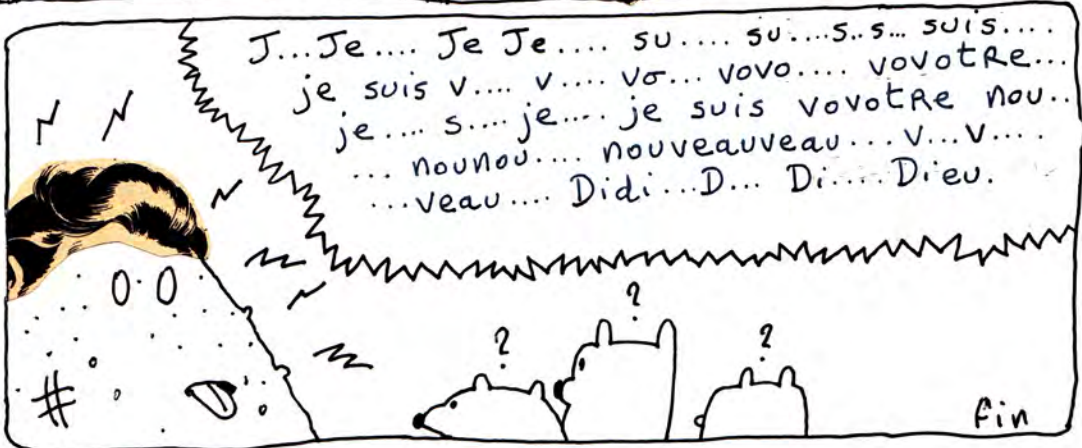 J...Je.... Je Je.... su.... su....s..s... suis....
je suis v.... v.... vo... vovo.... vovotre...
je.... s.... je.... je suis vovotre nou..
... nounou.... nouveauveau... v...v....
...veau.... Didi...D... Di.... Dieu.
?
?
?
#
fin